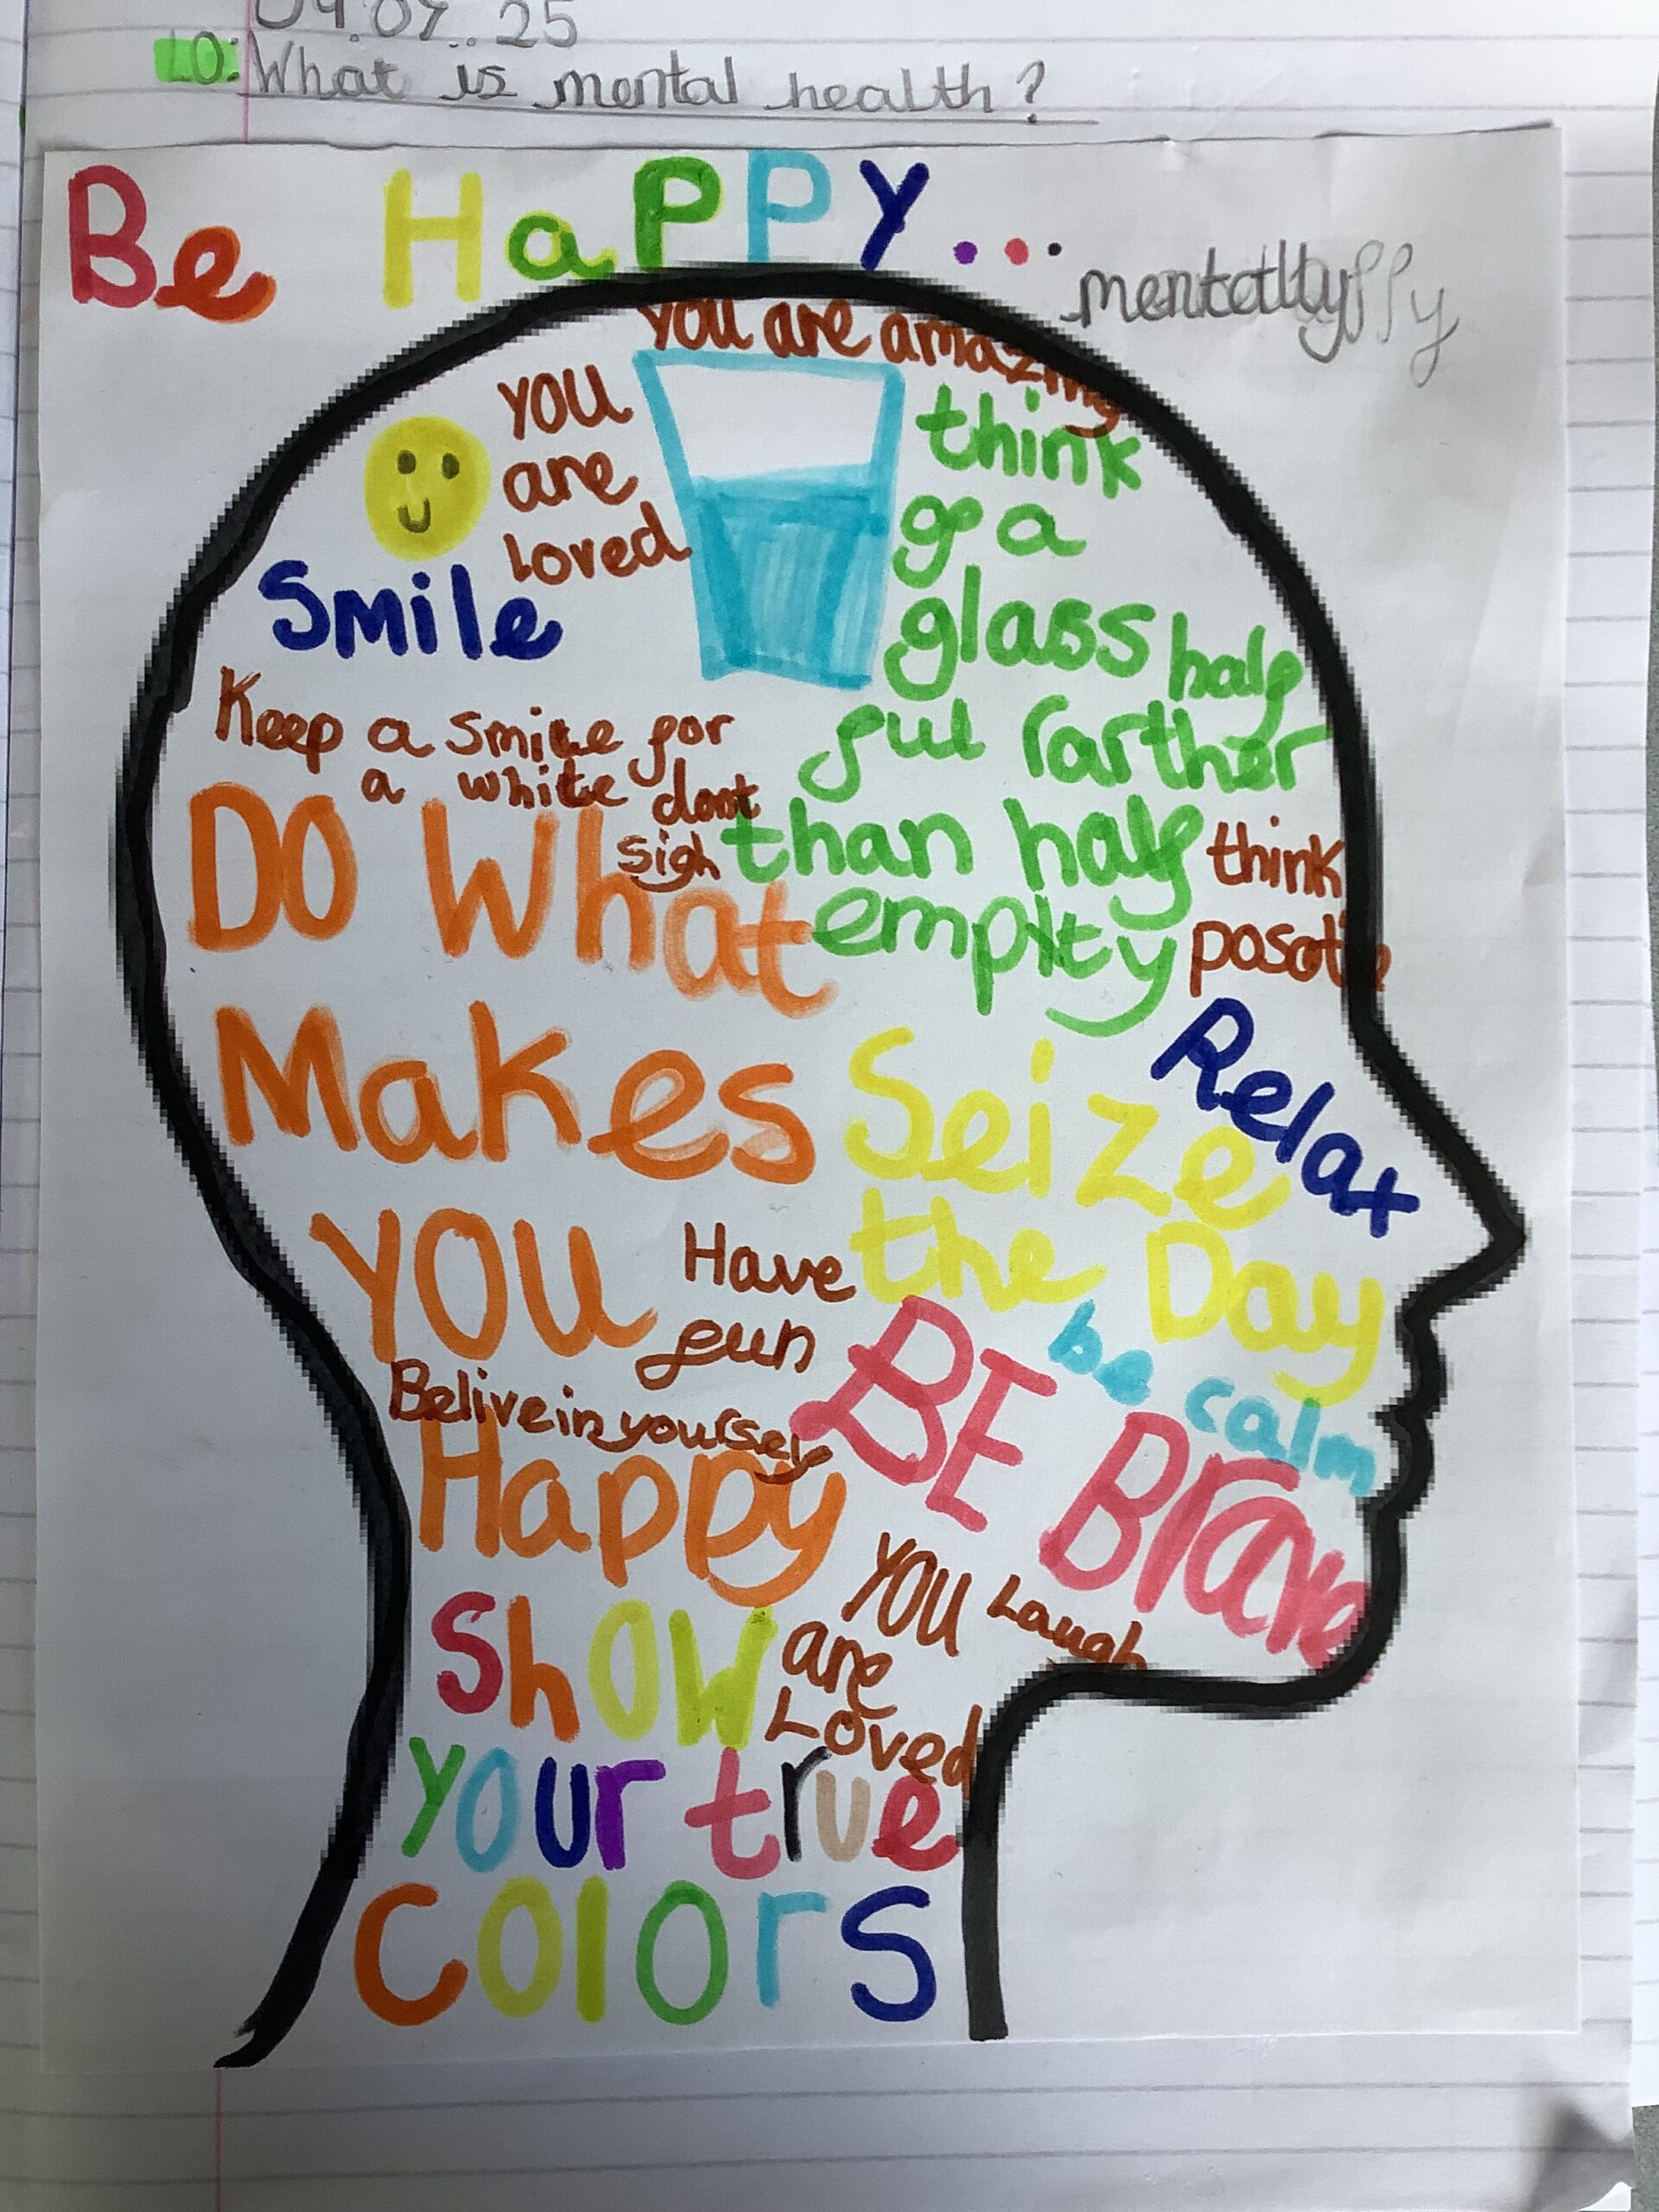 04.07.25
LO: What is mental health?
Be HaPPY...
mentally
You are amazing
YOU
are
loved
think
of a
glass half
full rarther
than half
empty
Smile
Keep a smile for
a white dont
sigh
think
DO What
Makes
YOU
Happy
Relax
Seize
the Day
Have
fun
be calm
Belive in yourself
BE Brave
YOU
are
Loved
Laugh
Show
your true
Colors